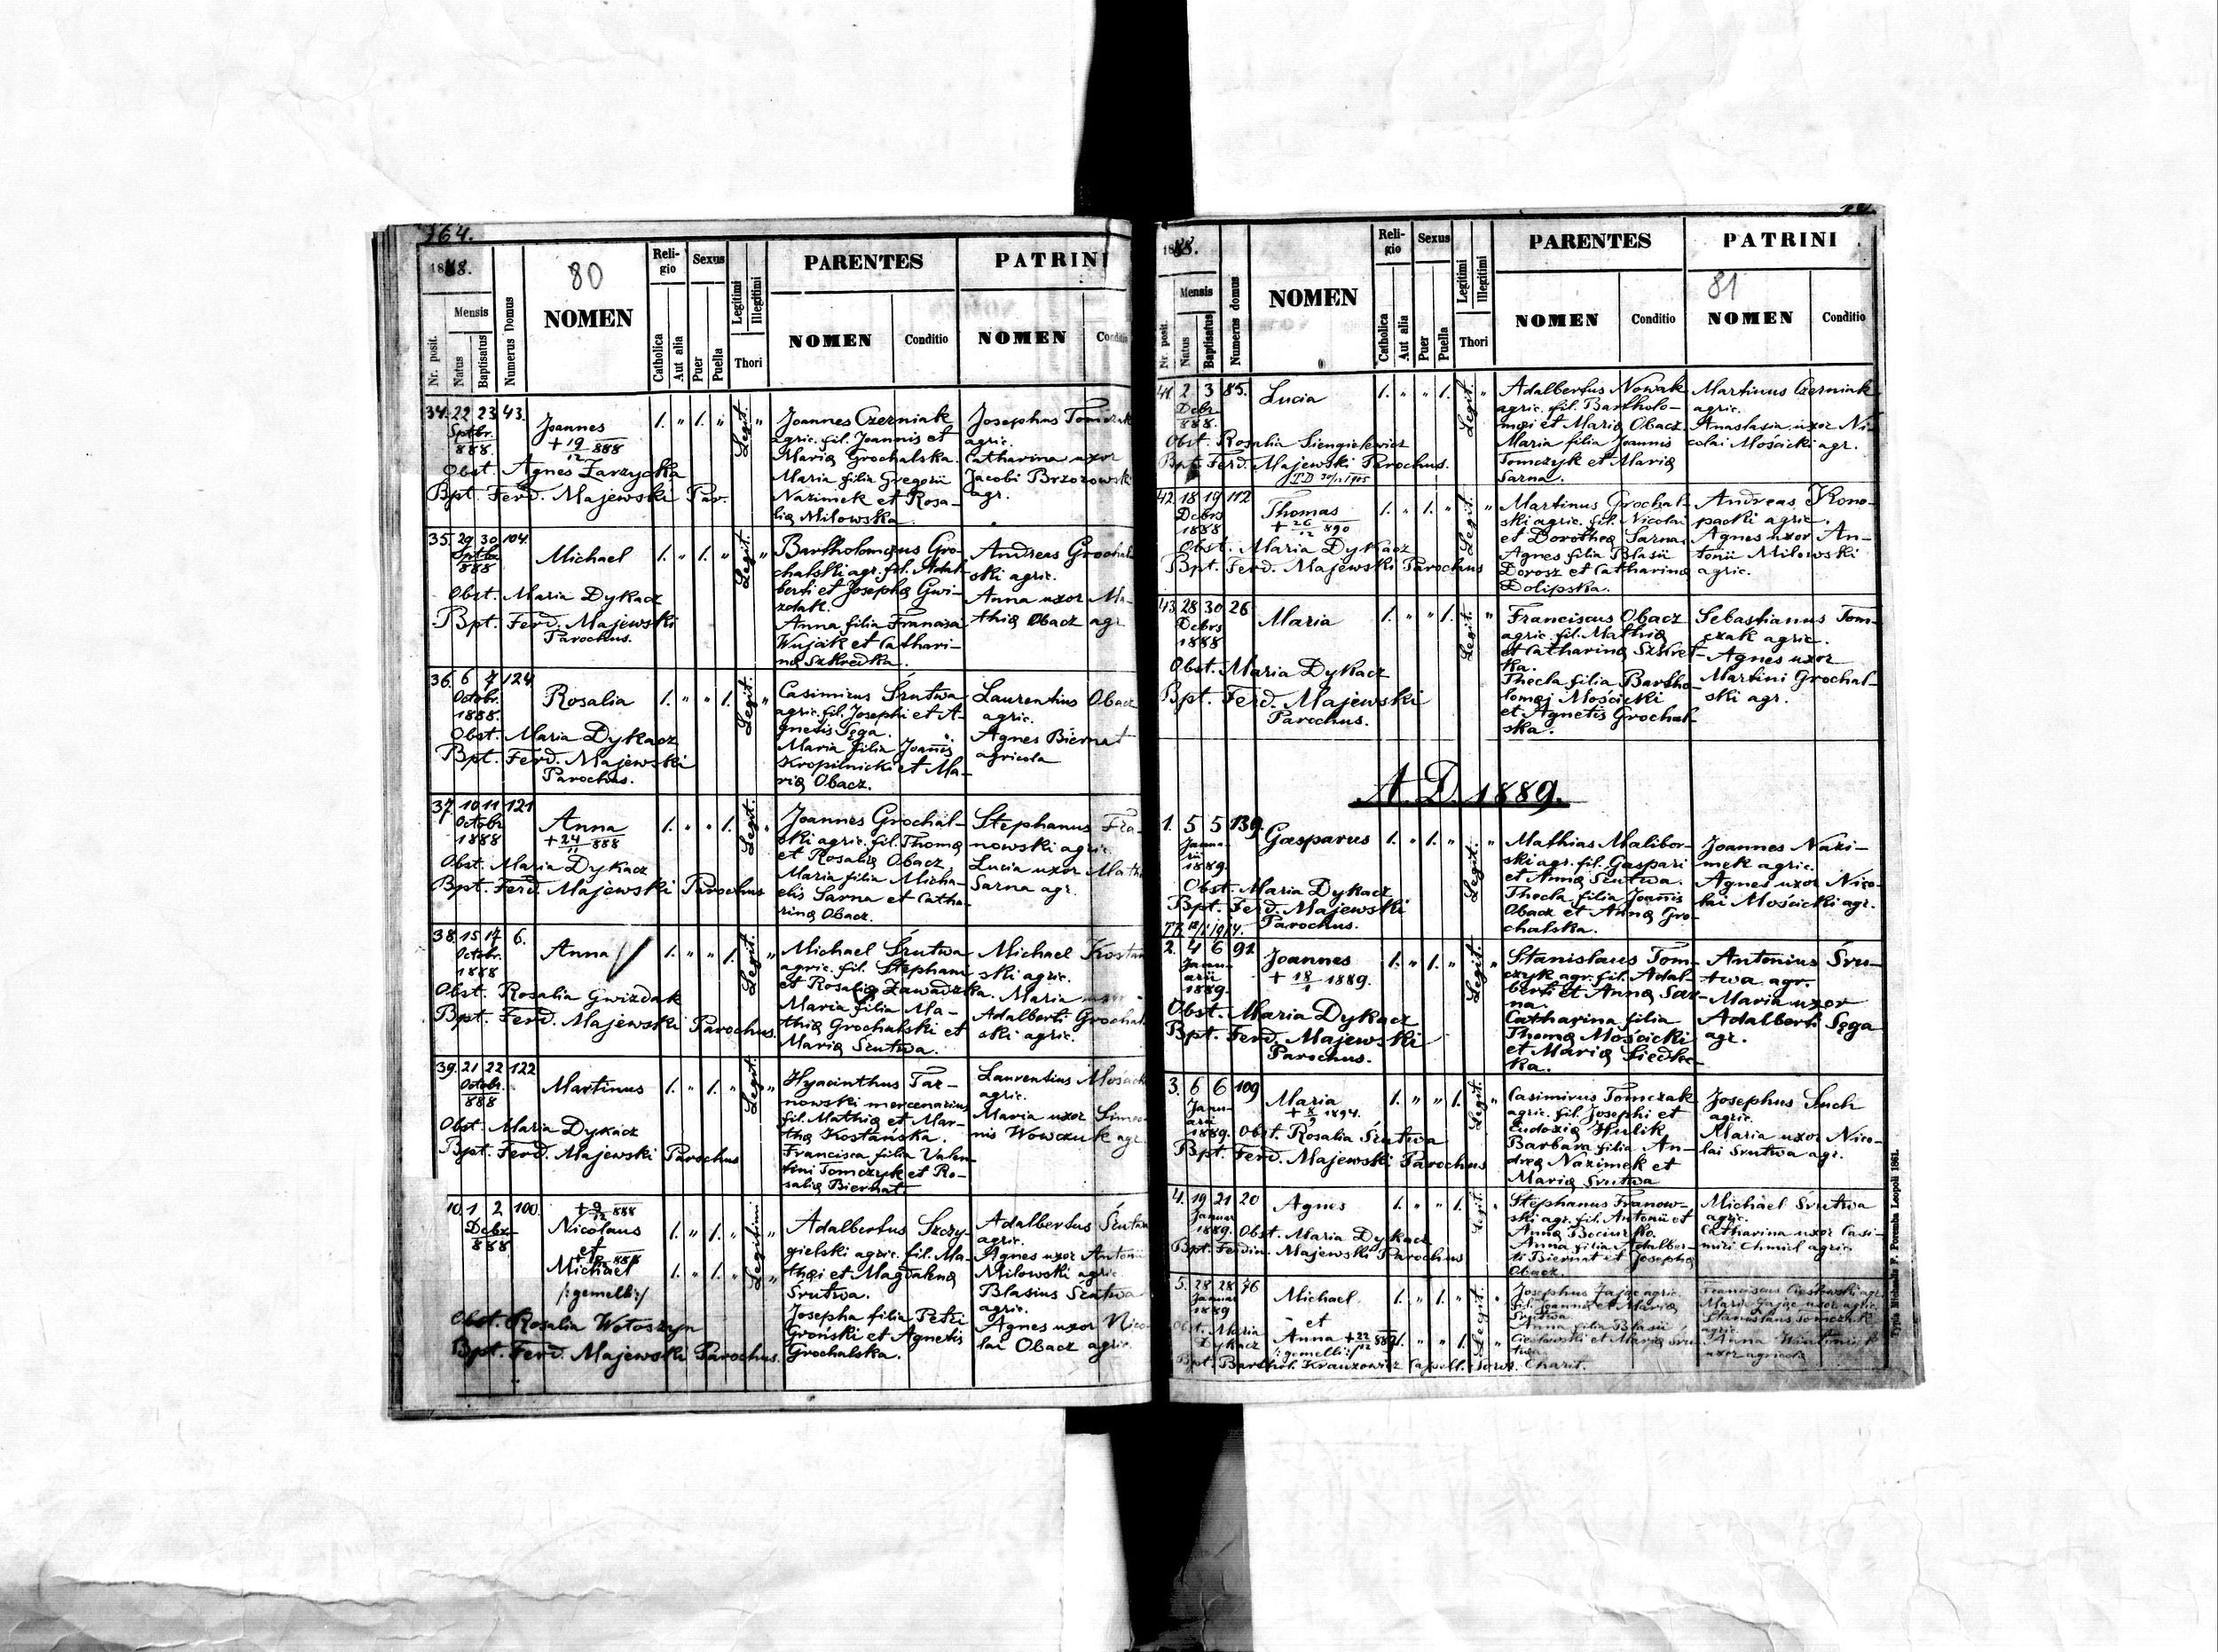 164.
1888.
80
Nr. posit.
Mensis
Natus
Baptisatus
Numerus Domus
NOMEN
Religio
Catholica
Aut alia
Sexus
Puer
Puella
Legitimi
Illegitimi
Thori
PARENTES
NOMEN
Conditio
PATRINI
NOMEN
34. 22 23 43.
Sptbr.
888.
Joannes
+ 19/12 888
1. " 1. "
Legit.
"
Obst. Agnes Zarzycka
Bpt. Ferd. Majewski Par.
Joannes Czerniak
agric. fil. Joannis et
Mariæ Grochalska.
Maria filia Gregorii
Nazimek et Rosa-
liæ Milowska.
Josephus
agric.
Catharina uxor
Jacobi
agr.
35. 29 30 104.
Sptbr
888
Michael
1. " 1. "
Legit.
"
Obst. Maria Dykacz
Bpt. Ferd. Majewski
Parochus.
Bartholomæus Gro-
chalski agr. fil. Adal-
berti et Josephæ Gwi-
zdak.
Anna filia
Wujak et Cathari-
næ Szkredka.
Andreas
ski agric.
Anna uxor Ma-
thiæ Obacz agr
36. 6 7 124
Octobr.
1888.
Rosalia
1. " " 1.
Legit.
"
Obst. Maria Dykacz
Bpt. Ferd. Majewski
Parochus.
Casimirus Śrutwa
agric. fil. Josephi et A-
gnetis Sęga.
Maria filia Joannis
Kropilnicki et Ma-
riæ Obacz.
Laurentius Obacz
agric.
Agnes Biernat
agricola
37. 10 11 121
Octobr
1888
Anna
+ 24/11 888
1. " " 1.
Legit.
"
Obst. Maria Dykacz
Bpt. Ferd. Majewski Parochus
Joannes Grochal-
ski agric. fil. Thomæ
et Rosaliæ Obacz
Maria filia Micha-
elis Sarna et Catha-
rinæ Obacz.
Stephanus Fra-
nowski agric.
Lucia uxor
Sarna agr.
38. 15 17 6.
Octobr.
1888
Anna
1. " " 1.
Legit.
"
Obst. Rosalia Gwizdak
Bpt. Ferd. Majewski Parochus.
Michael Śrutwa
agric. fil. Stephani
et Rosaliæ Zawadzka.
Maria filia Ma-
thiæ Grochalski et
Mariæ Śrutwa.
Michael
ski agric.
Maria
Adalberti
ski agric.
39. 21 22 122
Octobr.
888
Martinus
1. " 1. "
Legit.
"
Obst. Maria Dykacz
Bpt. Ferd. Majewski Parochus
Hyacinthus Tar-
nowski mercenarius
fil. Mathiæ et Mar-
thæ Kostańska.
Francisca filia Valen-
tini Tomczyk et Ro-
saliæ Biernat
Laurentius
agric.
Maria uxor Simeo-
nis Wowczuk agr
1 2 100
Debr.
888
+ 9/12 888
Nicolaus
et
888
Michael
/:gemelli:/
1. " 1. "
1. " 1. "
Legitimi
"
"
Obst. Rosalia Wołoszyn
Bpt. Ferd. Majewski Parochus.
Adalbertus Szczy-
gielski agric. fil. Ma-
thæi et Magdalenæ
Śrutwa.
Josepha filia Petri
Groński et Agnetis
Grochalska.
Adalbertus Śrutwa
agric.
Agnes uxor Antonii
Milowski agric
Blasius Śrutwa
agric.
Agnes uxor Nico-
lai Obacz agric
1888.
81
Nr. posit.
Mensis
Natus
Baptisatus
Numerus domus
NOMEN
Religio
Catholica
Aut alia
Sexus
Puer
Puella
Legitimi
Illegitimi
Thori
PARENTES
NOMEN
Conditio
PATRINI
NOMEN
Conditio
41. 2 3 85.
Debr.
888.
Lucia
1. " " 1.
Legit.
"
Obst. Rosalia Siengielewicz
Bpt. Ferd. Majewski Parochus.
Adalbertus Nowak
agric. fil. Bartholo-
mæi et Mariæ Obacz.
Maria filia Joannis
Tomczyk et Mariæ
Sarna.
Martinus Czerniak
agric.
Anastasia uxor Ni-
colai Mościcki agr.
42. 18 19 112
Debrs
1888
Thomas
+ 26/12 890
1. " 1. "
Legit.
"
Obst. Maria Dykacz
Bpt. Ferd. Majewski Parochus
Martinus Grochal-
ski agric. fil. Nicolai
et Dorotheæ Sarna.
Agnes filia Blasii
Dorosz et Catharinæ
Dolipska.
Andreas Kono-
packi agric.
Agnes uxor An-
tonii Milowski
agric.
43. 28 30 26
Debrs
1888
Maria
1. " " 1.
Legit.
"
Obst. Maria Dykacz
Bpt. Ferd. Majewski
Parochus.
Franciscus Obacz
agric. fil. Mathiæ
et Catharinæ Szkret-
ka.
Thecla filia Bartho-
lomæi Mościcki
et Agnetis Grochal-
ska.
Sebastianus Tom-
czak agric.
Agnes uxor
Martini Grochal-
ski agr.
A. D. 1889.
1. 5 5 139.
Janua-
rii
1889.
Gasparus
1. " 1. "
Legit.
"
Obst. Maria Dykacz
Bpt. Ferd. Majewski
Parochus.
Mathias Malibor-
ski agr. fil. Gaspari
et Annæ Śrutwa.
Thecla filia Joannis
Obacz et Annæ Gro-
chalska.
Joannes Nazi-
mek agric.
Agnes uxor Nico-
lai Mościcki agr.
2. 4 6 91
Janu-
arii
1889.
Joannes
1889.
1. " 1. "
Legit.
"
Obst. Maria Dykacz
Bpt. Ferd. Majewski
Parochus.
Stanislaus Tom-
czyk agr. fil. Adal-
berti et Annæ Sar-
na.
Catharina filia
Thomæ Mościcki
et Mariæ Siedlec-
ka.
Antonius Śru-
twa agr.
Maria uxor
Adalberti Sęga
agr.
3. 6 6 109
Janu-
arii
1889.
Maria
1894.
1. " " 1.
Legit.
"
Obst. Rosalia Śrutwa
Bpt. Ferd. Majewski Parochus
Casimirus Tomczak
agric. fil. Josephi et
Eudoxiæ Hulik
Barbara filia An-
dreæ Nazimek et
Mariæ Śrutwa
Josephus Such
agric.
Maria uxor Nico-
lai Śrutwa agr.
4. 19 21 20
Januar
1889.
Agnes
1. " " 1.
Legit.
"
Obst. Maria Dykacz
Bpt. Ferdin. Majewski Parochus
Stephanus Franow-
ski agr. fil. Antonii et
Annæ Bociurko.
Anna filia Adalber-
ti Biernat et Josephæ
Obacz.
Michael Śrutwa
agric.
Catharina uxor Casi-
miri Chmiel agric.
5. 28 28 76
Januar
1889
Michael
et
Anna + 22/12 889
/:gemelli:/
1. " 1. "
Legit.
Obst. Maria
Dykacz
Bpt. Barthol. Krauzowicz Capell. Soror. Charit.
Josephus Zając agric.
fil. Joannis et Mariæ
Śrutwa
Anna filia Blasii
Cieślowski et Mariæ Śru-
twa.
Franciscus Cieślowski agr.
Maria Zając uxor agric.
Stanislaus Tomczak
agric.
Anna
uxor agricolæ
Typis Michaelis F. Poremba Leopoli 1861.